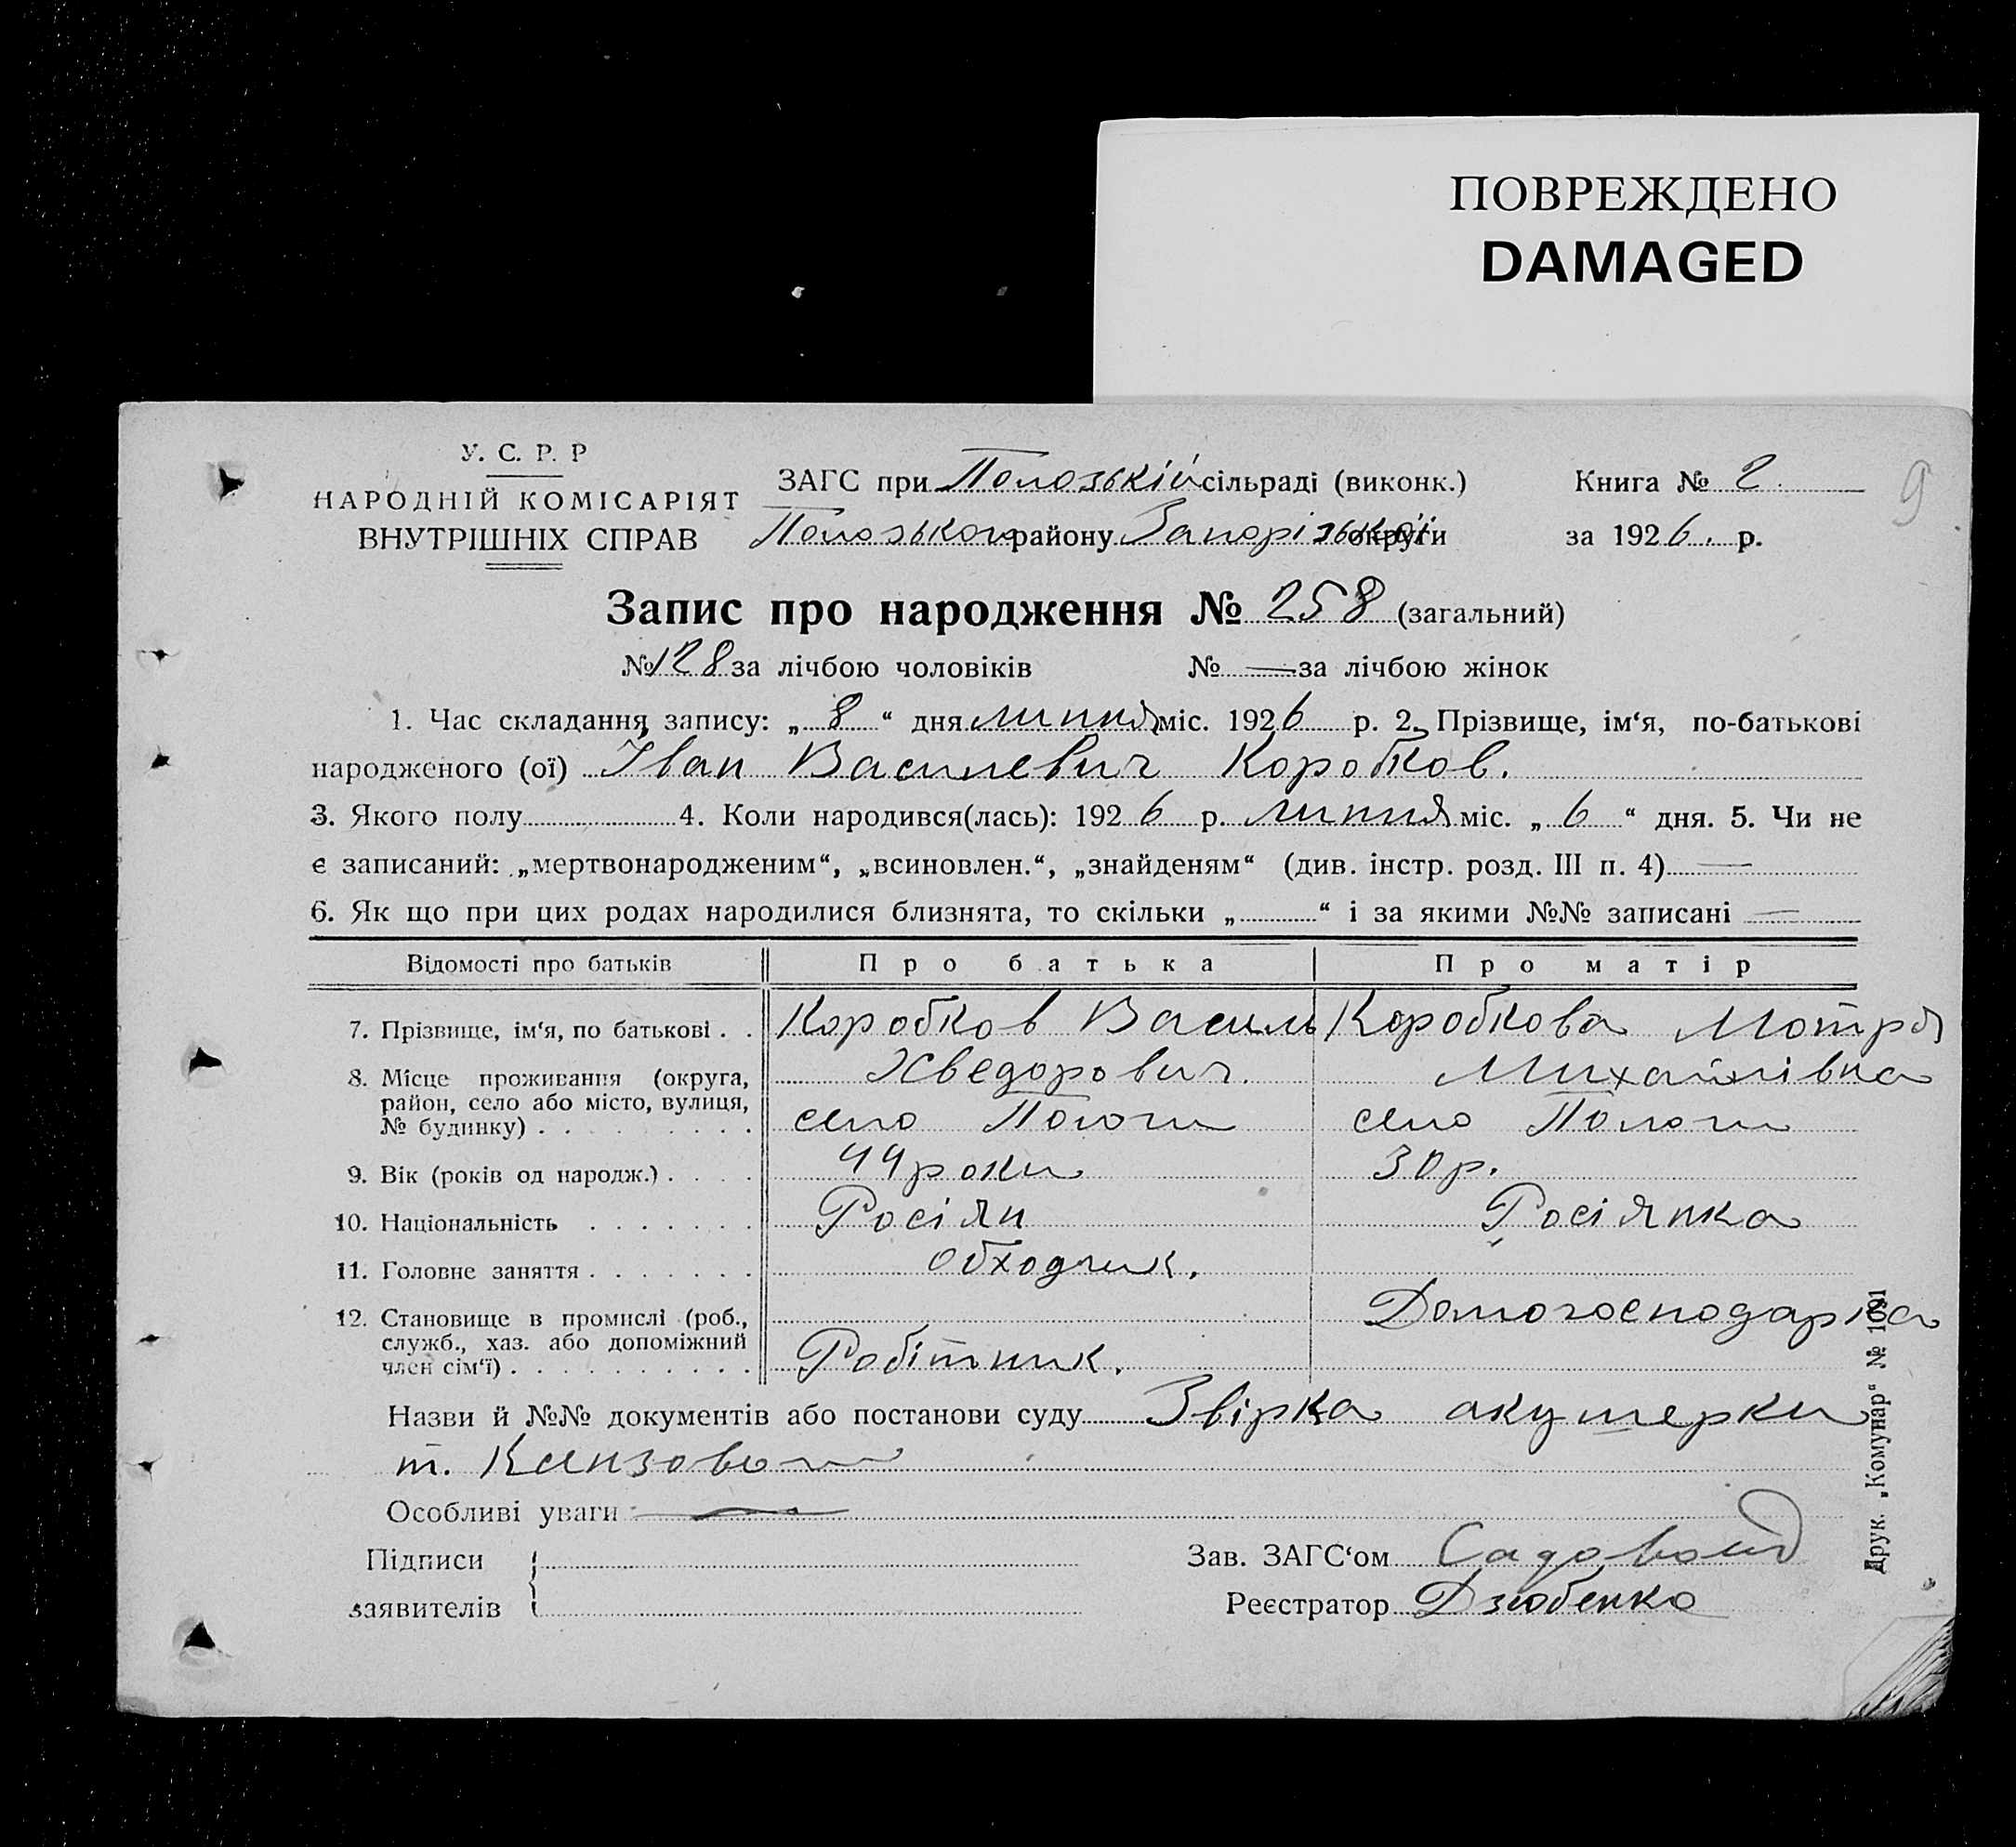 ПОВРЕЖДЕНО
DAMAGED
9
У. С. Р. Р
НАРОДНІЙ КОМІСАРІЯТ
ВНУТРІШНІХ СПРАВ
ЗАГС при Полозькій сільраді (виконк.)
Полозького району Запорізької округи
Книга № 2.
за 1926. р.
Запис про народження № 258 (загальний)
№ 128 за лічбою чоловіків № — за лічбою жінок
1. Час складання запису: „ 8 “ дня липня міс. 1926 р. 2. Прізвище, ім‘я, по-батькові
народженого (ої) Іван Василевич Коробков.
3. Якого полу 4. Коли народився(лась): 1926 р. липня міс. „ 6 “ дня. 5. Чи не
є записаний: „мертвонародженим“, „всиновлен.“, „знайденям“ (див. інстр. розд. III п. 4) —
6. Як що при цих родах народилися близнята, то скільки „ “ і за якими №№ записані —
Відомості про батьків Про батька Про матір
7. Прізвище, ім‘я, по батькові . . Коробков Василь Коробкова Мотря
Хведорович. Михайлівна
8. Місце проживання (округа,
район, село або місто, вулиця,
№ будинку) . . . . . . . . село Пологи село Пологи
9. Вік (років од народж.) . . . . 44 роки 30 р.
10. Національність . . . . . . . Росіян Росіянка
11. Головне заняття . . . . . . . Обходчик.
12. Становище в промислі (роб.,
служб., хаз. або допоміжний
член сім‘ї) . . . . . . . . . . Робітник. Домогосподарка
Назви й №№ документів або постанови суду Звірка акушерки
т.
Особливі уваги —
Підписи
заявителів
Зав. ЗАГС‘ом Садовой
Реєстратор Дзюбенко
Друк. „Комунар“ № 1091